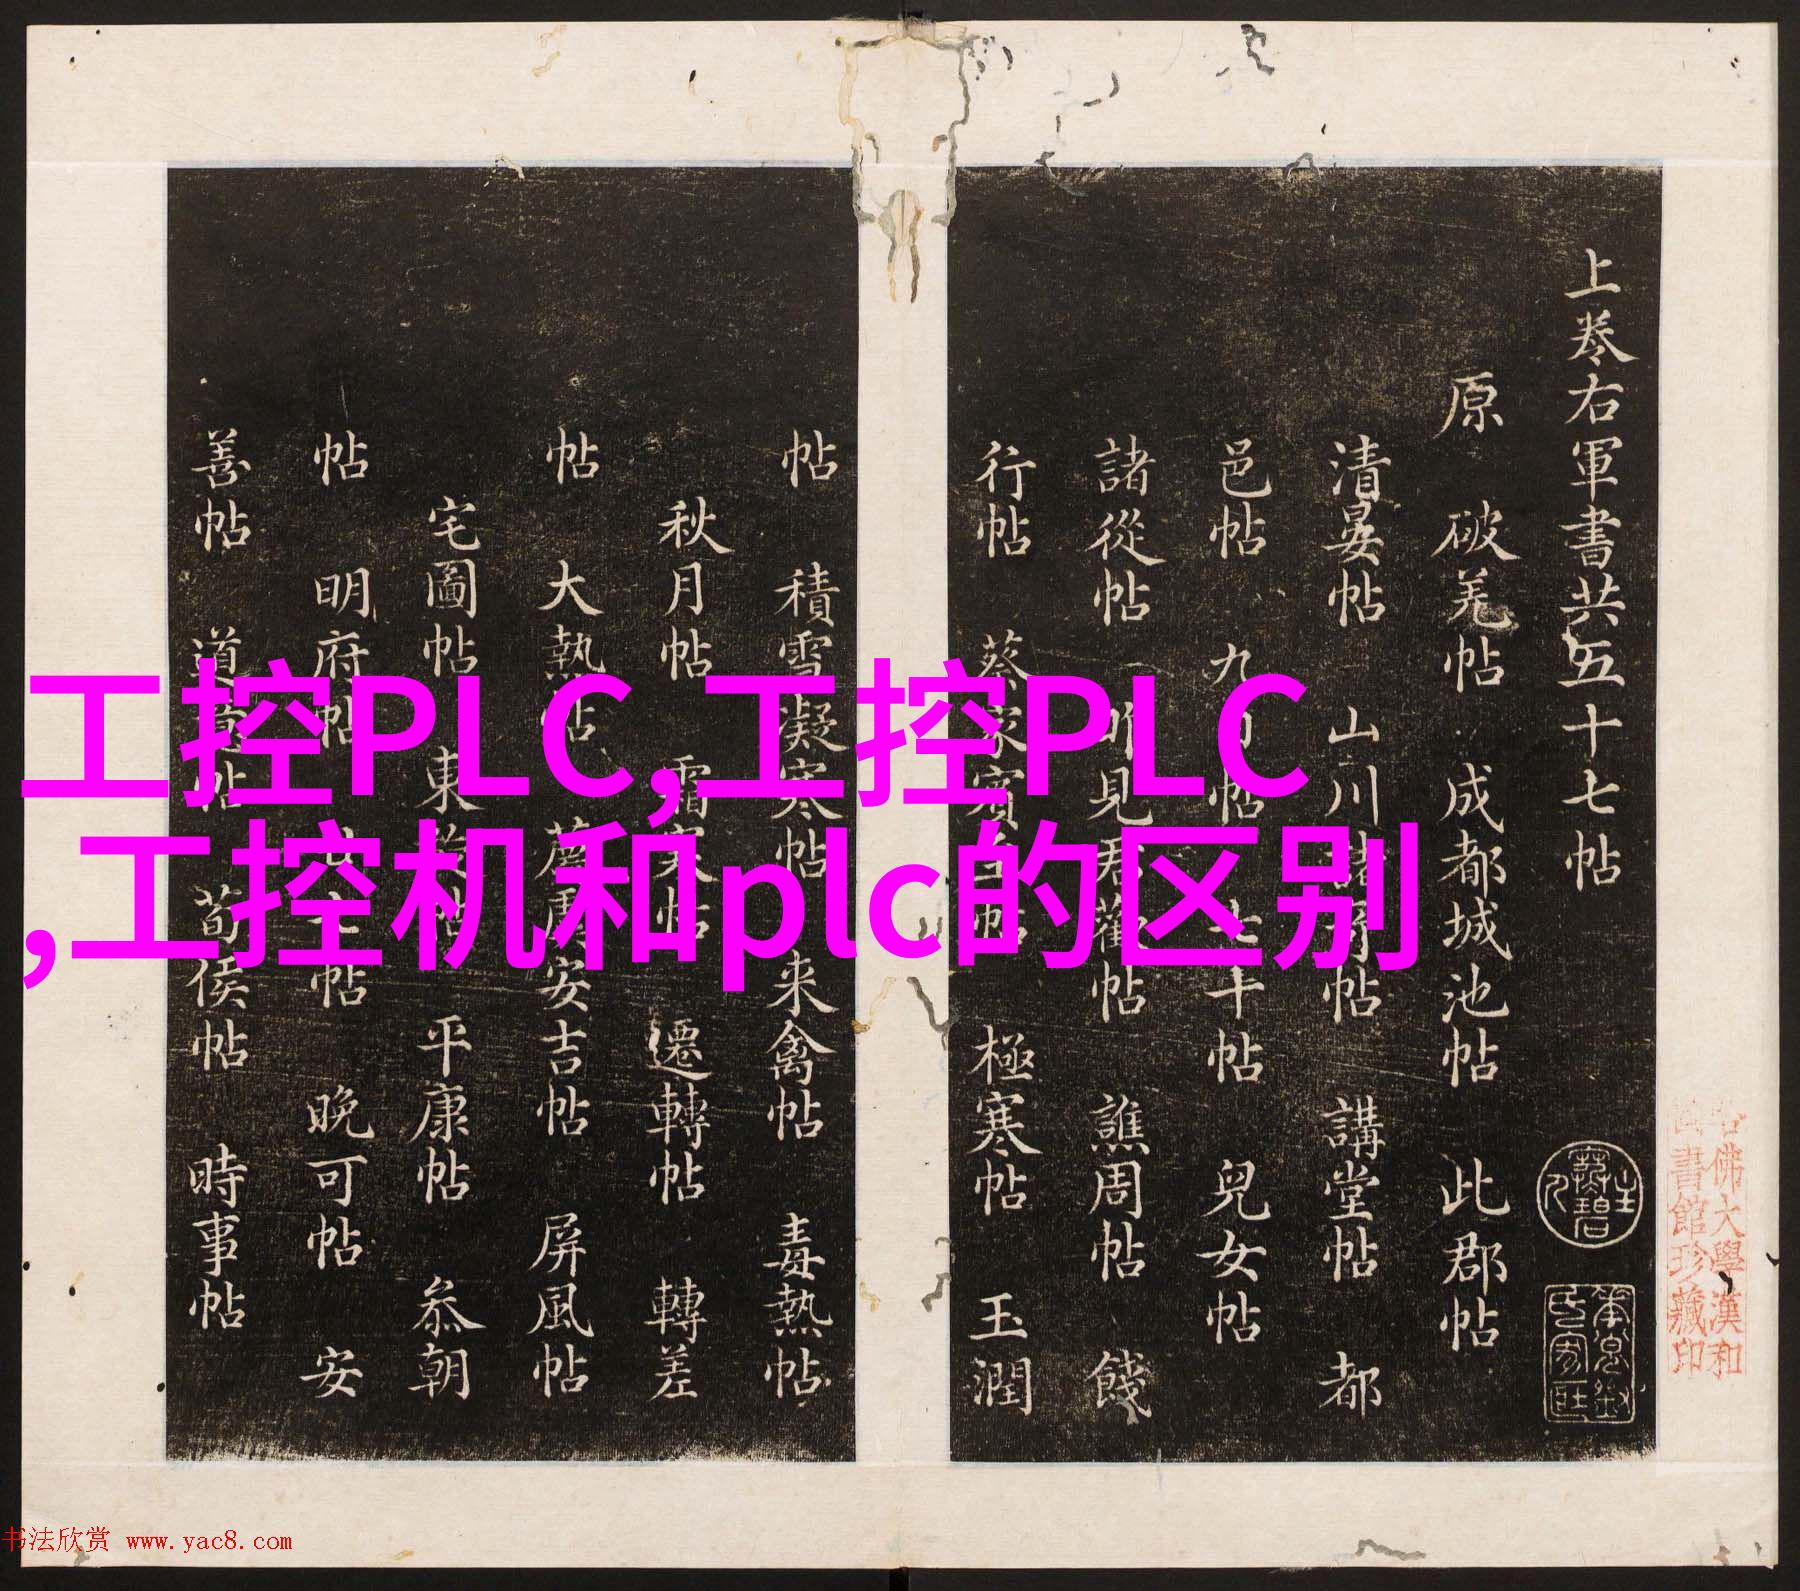 工控PLC,工控PLC
,工控机和plc的区别
上卷右軍書共五十七帖
原 破羌帖 成都城池帖 此郡帖
清晏帖 山川諸奇帖 講堂帖 都
邑帖 九日帖 七十帖 兒女帖
諸從帖 帖 譙周帖 餞
行帖 蔡家賓至帖 極寒帖 玉潤
帖 積雪凝寒帖 来禽帖 毒熱帖
秋月帖 霜寒帖 遷轉帖 轉差
帖 大熱帖 安吉帖 屏風帖
宅圖帖 東 平康帖 叅朝
帖 明府帖 帖 晚可帖 安
善帖 帖 荀侯帖 時事帖
佛大學漢和
書館珍藏印
书法欣赏 www.yac8.com